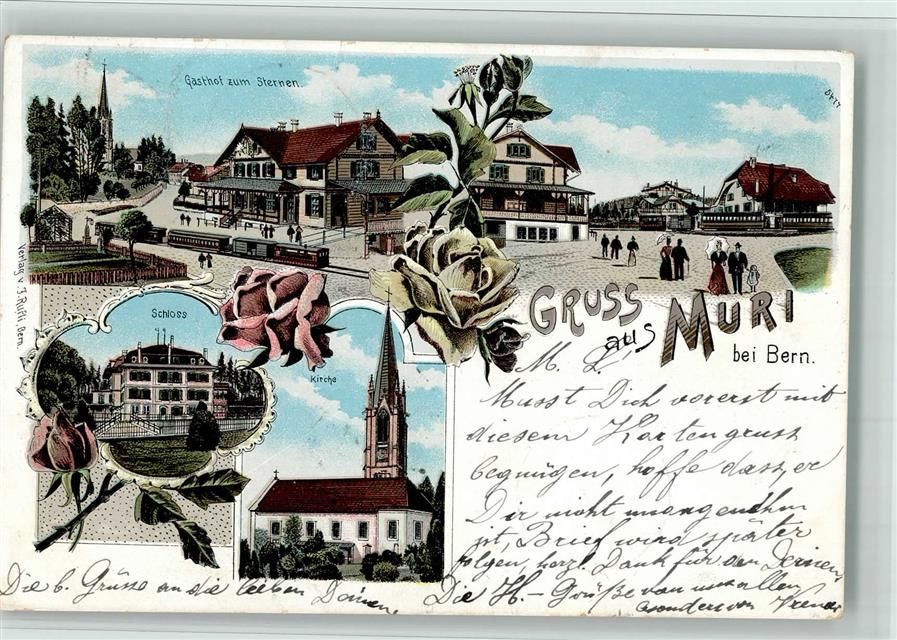 Gasthof zum Sternen.
Schloss
Kirche
Verlag v. J. Rüfli, Bern.
GRUSS
aus MURI
bei Bern.
M. L.
Musst Dich vorerst mit
diesem Kartengruss
begnügen, hoffe dass, er
Dir nicht unangenehm
ist, Brief wird später
folgen, herzl. Dank für den Deinen,
Die H. – Grüße von uns allen
besonders von
Die b. Grüsse an die lieben Deinen